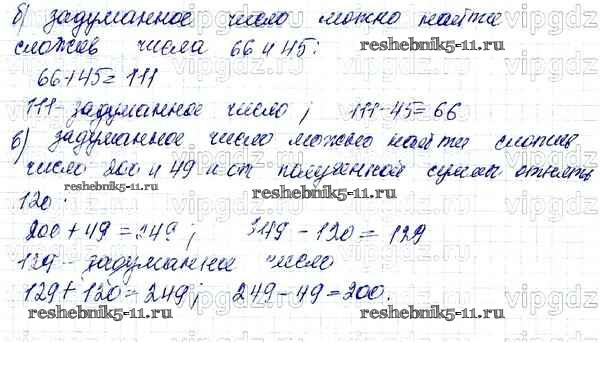 б) задуманное число можно найти
сложив числа 66 и 45:
66+45=111
111- задуманное число ; 111-45=66
в) задуманное число можно найти сложив
число 200 и 49 и от полученной суммы отнять
120:
200+49=249; 249-120=129
129- задуманное число
129+120=249; 249-49=200.
reshebnik5-11.ru
reshebnik5-11.ru
reshebnik5-11.ru
reshebnik5-11.ru
reshebnik5-11.ru
reshebnik5-11.ru
reshebnik5-11.ru
vipgdz